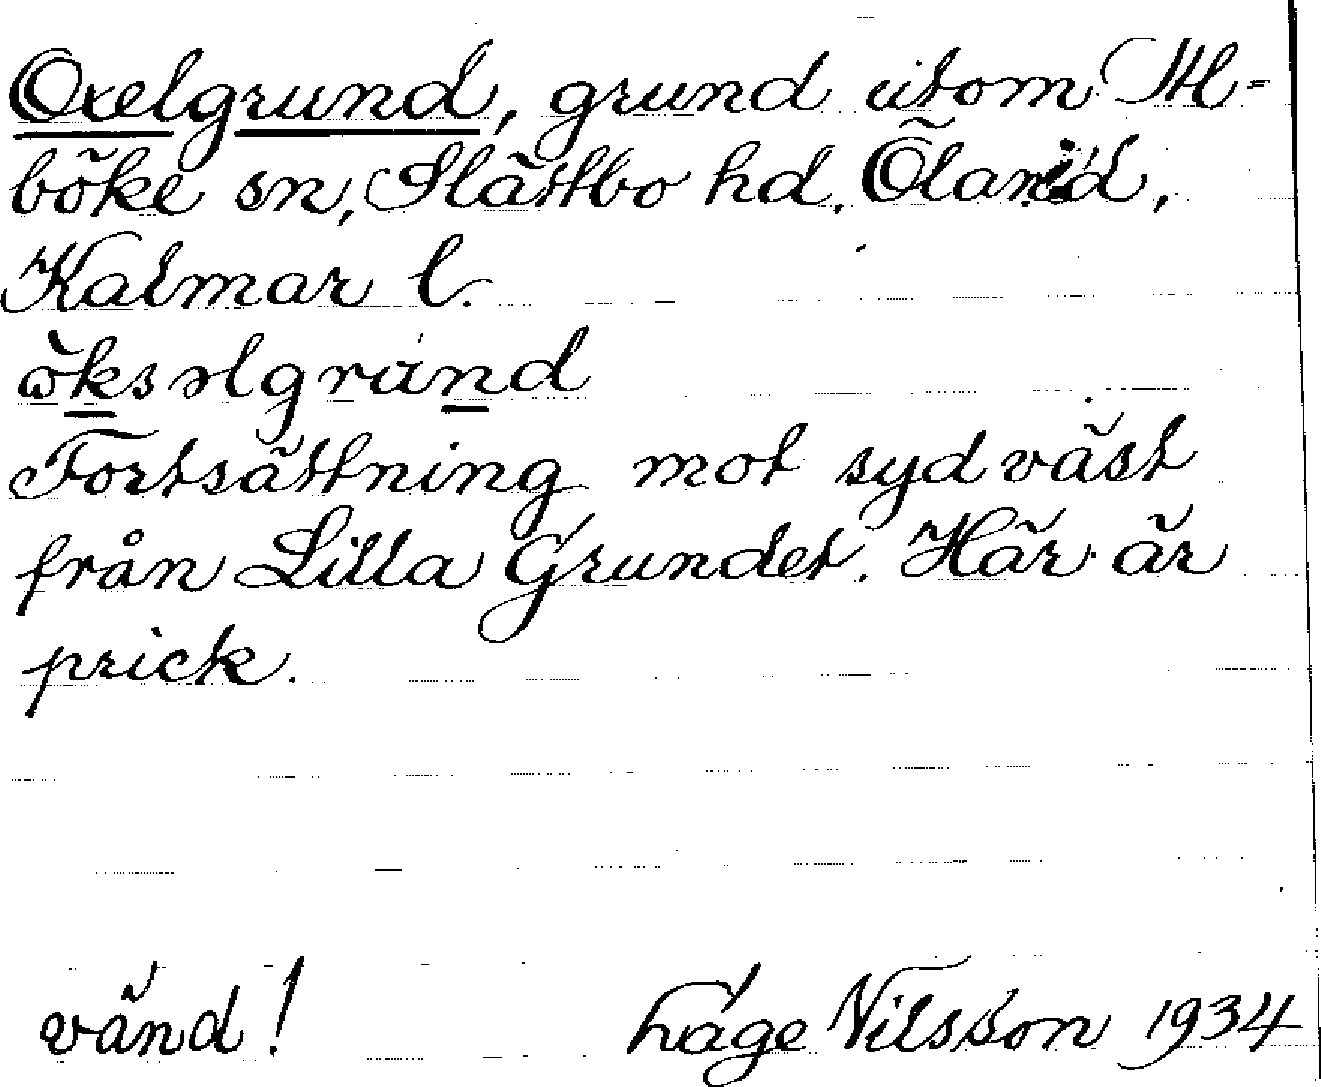 Oxelgrund, grund utom Al-
böke sn, Slättbo hd. Öland,
Kalmar l.
Fortsättning mot sydväst
från Lilla Grundet. Här är
prick.
vänd! Håge Nilsson 1934